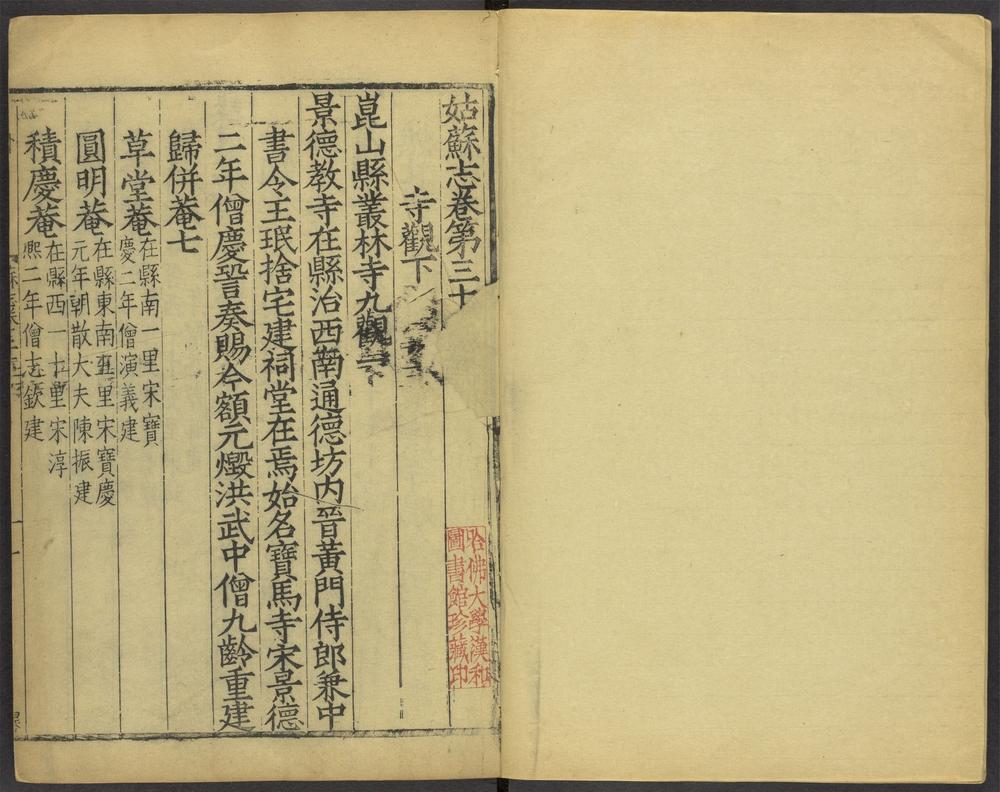 姑蘇志卷第三十
寺觀下
崑山縣叢林寺九觀一
景德教寺在縣治西南通德坊内晉黃門侍郎兼中
書令王珉捨宅建祠堂在焉始名寶馬寺宋景德
二年僧慶詧奏賜今額元燬洪武中僧九齡重建
歸併菴七
草堂菴在縣南一里宋寶
慶二年僧演義建
圓明菴在縣東南五里宋寶慶
元年朝散大夫陳振建
積慶菴在縣西一十里宋淳
熙二年僧志欽建
哈佛大學漢和
圖書館珍藏印